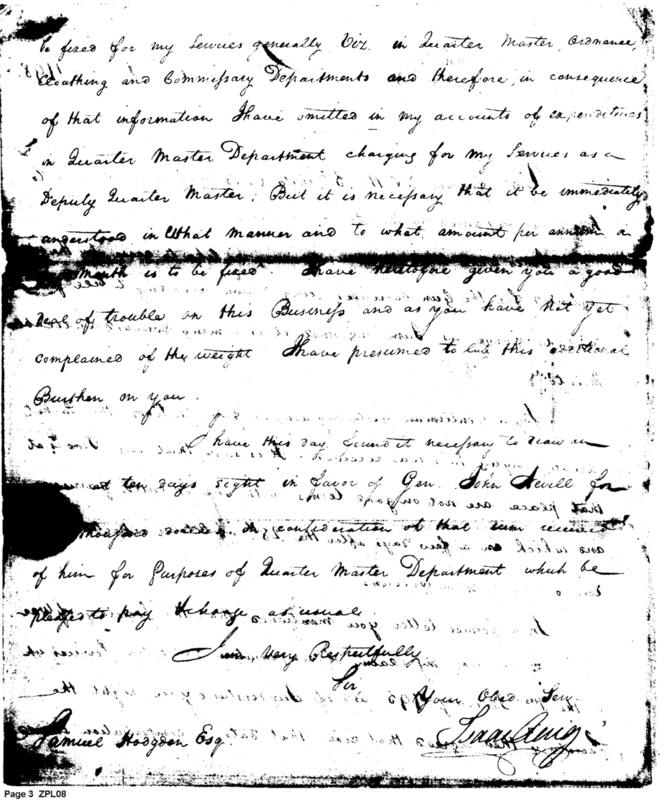 be fixed for my Services generally Viz. in Quarter Master, Ordnance,
Cloathing and Commissary Departments and therefore, in consequence
of that information I have omitted in my accounts of expenditures
in Quarter Master Department charging for my Services as a
Deputy Quarter Master; But it is necessary that it be immediately
understood in What manner and to what amount per annum a
Month is to be fixed. I have heretofore given you a good
deal of trouble on this Business and as you have not yet
complained of the weight I have presumed to this additional
Burthen on you.
I have this day found it necessary to draw on
at ten days sight in favor of Gen. John Nevill for
thousand dollars in consideration of that sum received
of him for purposes of Quarter Master Department which be
pleased to pay & charge as usual.
I am Very Respectfully
Sir
Your Obed Ser
Samuel Hodgdon Esq. Isaac Craig
Page 3 ZPL08